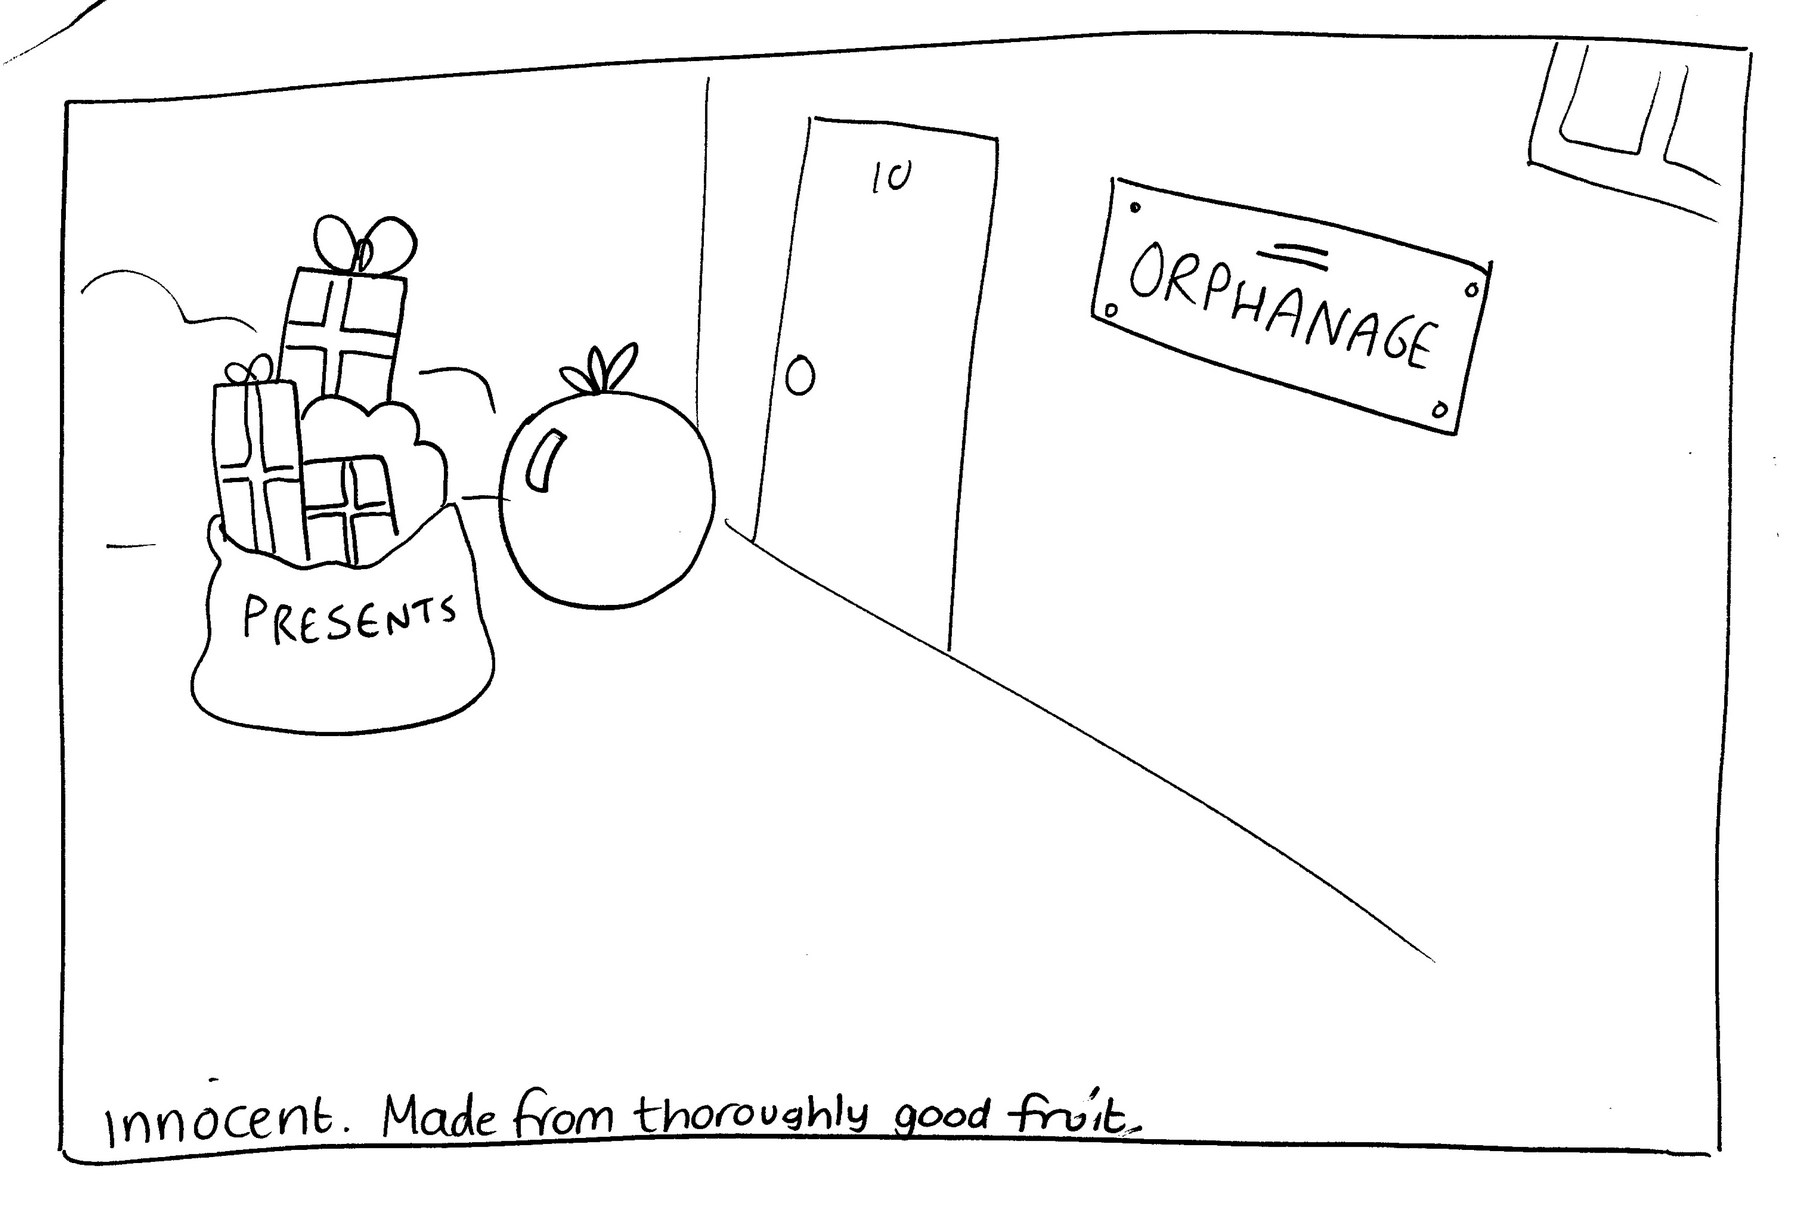 10
ORPHANAGE
PRESENTS
innocent. Made from thoroughly good fruit.